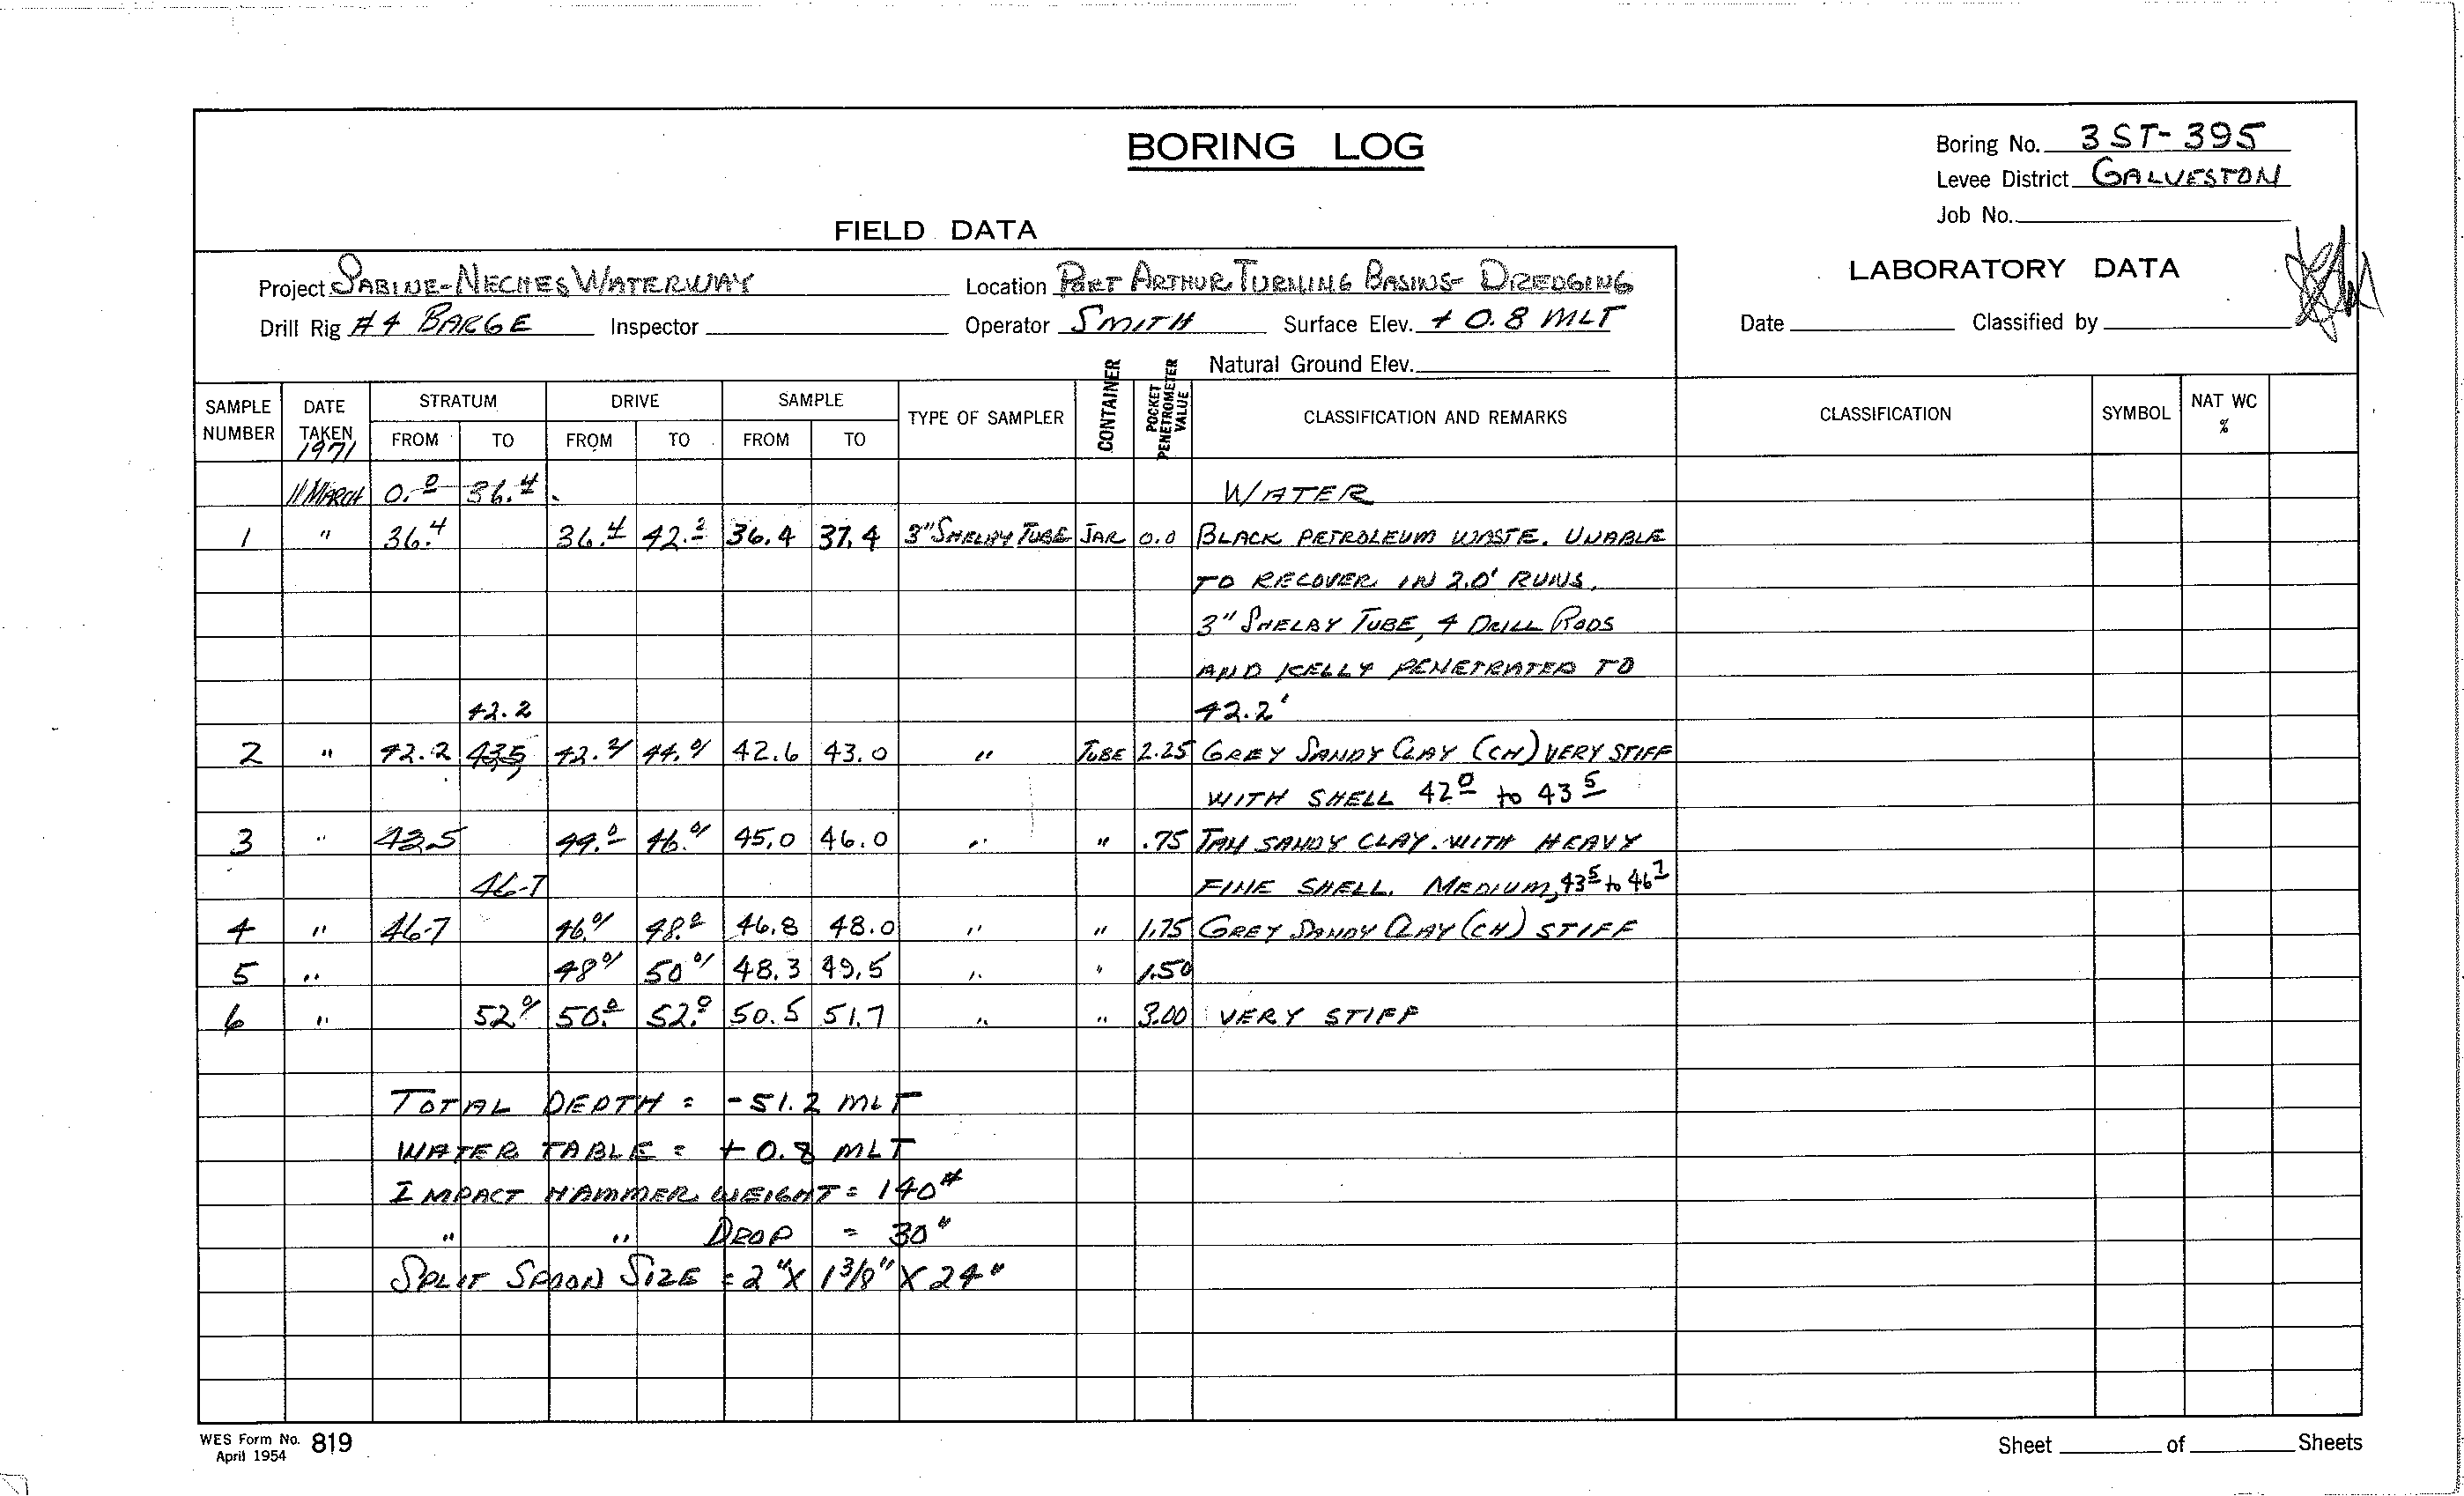 BORING LOG
Boring No. 3ST-395
Levee District GALVESTON
Job No.
FIELD DATA
LABORATORY DATA
Project SABINE-NECHES WATERWAY Location PORT ARTHUR TURNING BASINS- DREDGING
Drill Rig #4 BARGE Inspector Operator SMITH Surface Elev. + 0.8 MLT Date Classified by
Natural Ground Elev.
SAMPLE NUMBER DATE TAKEN 1971 STRATUM FROM TO DRIVE FROM TO SAMPLE FROM TO TYPE OF SAMPLER CONTAINER POCKET PENETROMETER VALUE CLASSIFICATION AND REMARKS CLASSIFICATION SYMBOL NAT WC %
11 MARCH 0.0 36.4 WATER
1 " 36.4 36.4 42.2 36.4 37.4 3" SHELBY TUBE JAR 0.0 BLACK PETROLEUM WASTE. UNABLE
TO RECOVER IN 2.0' RUNS.
3" SHELBY TUBE, 4 DRILL RODS
AND KELLY PENETRATED TO
42.2 42.2'
2 " 42.2 43.5 42.2 44.0 42.6 43.0 " TUBE 2.25 GREY SANDY CLAY (CH) VERY STIFF
WITH SHELL 42.0 to 43.5
3 " 43.5 44.0 46.0 45.0 46.0 " " .75 TAN SANDY CLAY. WITH HEAVY
46.7 FINE SHELL. MEDIUM, 43.5 to 46.7
4 " 46.7 46.0 48.0 46.8 48.0 " " 1.75 GREY SANDY CLAY (CH) STIFF
5 " 48.0 50.0 48.3 49.5 " " 1.50
6 " 52.0 50.0 52.0 50.5 51.7 " " 3.00 VERY STIFF
TOTAL DEPTH = -51.2 MLT
WATER TABLE = + 0.8 MLT
IMPACT HAMMER WEIGHT = 140#
" " DROP = 30"
SPLIT SPOON SIZE = 2" X 1 3/8" X 24"
WES Form No. 819
April 1954
Sheet of Sheets